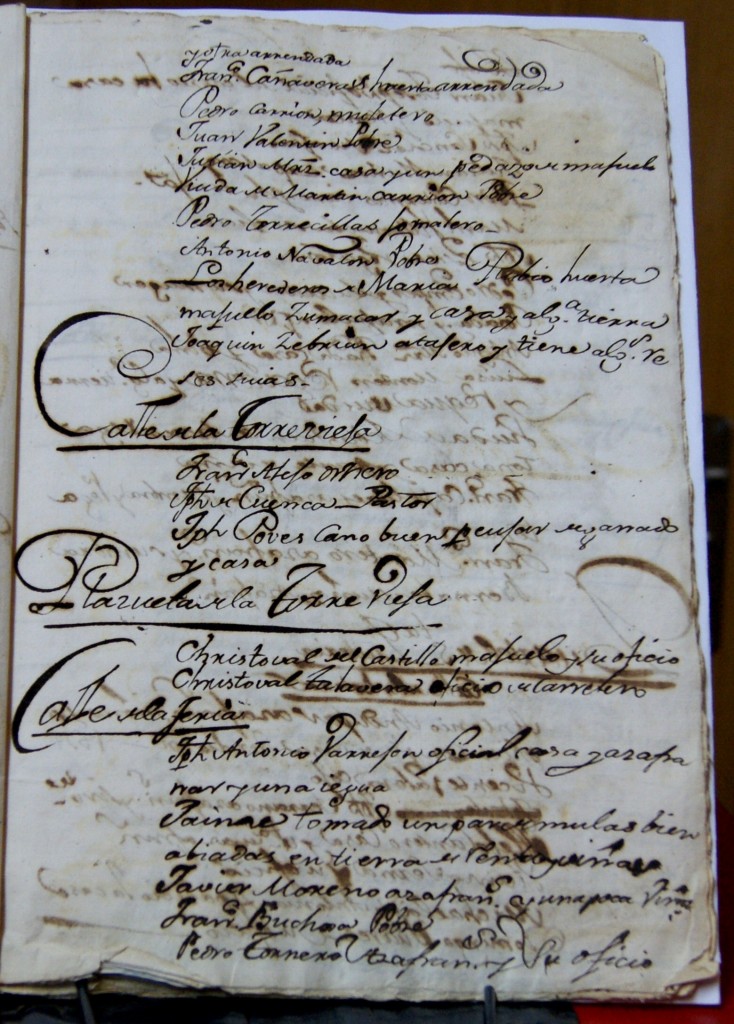 y otra arrendada
Fran.co Cañaveras huerta arrendada
Pedro Carrion, muletero
Juan Valencin Pobre
Julian Mrz. casa y un pedazo de majuelo
Viuda de Martin Carrion Pobre
Pedro Torrecillas jornalero
Antonio Navalon Pobre
Los herederos de Maria Rubio huerta
majuelo Zumacar y casa y alg.a tierra
Joaquin Zebrian atajero y tiene alg.s re
ses suias
Calle de la Torre viesa
Fran.co Alejo
Jph de Cuenca Pastor
Jph Poves Cano buen de ganado
y casa
Plazuela de la Torre Viesa
Christoval del Castillo majuelo y su oficio
Christoval talavera oficio
Calle de la feria
Jph Antonio Parreson oficial casa y azafra
nar y una iegua
Jaime tomado un par de mulas bien
abiadas en tierra de y viñas
Javier Moreno azafran.s y una poca
Fran.co Pobre
Pedro Tornero Azafran. y Su oficio